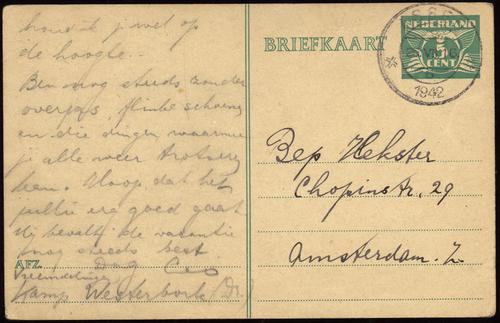 houd ik je wel op
de hoogte..
Ben nog steeds zonder
overjas, flinke schoenen
en die dingen waarmee
je alle weer trotseren
kan. Hoop, dat het
jullie erg goed gaat.
Mij bevalt de vacantie
nog steeds best.
Dag
AFZ.
Kamp Westerbork (Dr.)
BRIEFKAART
NEDERLAND
5
CENT
1942
Bep Hekster
Chopinstr. 29
Amsterdam. Z